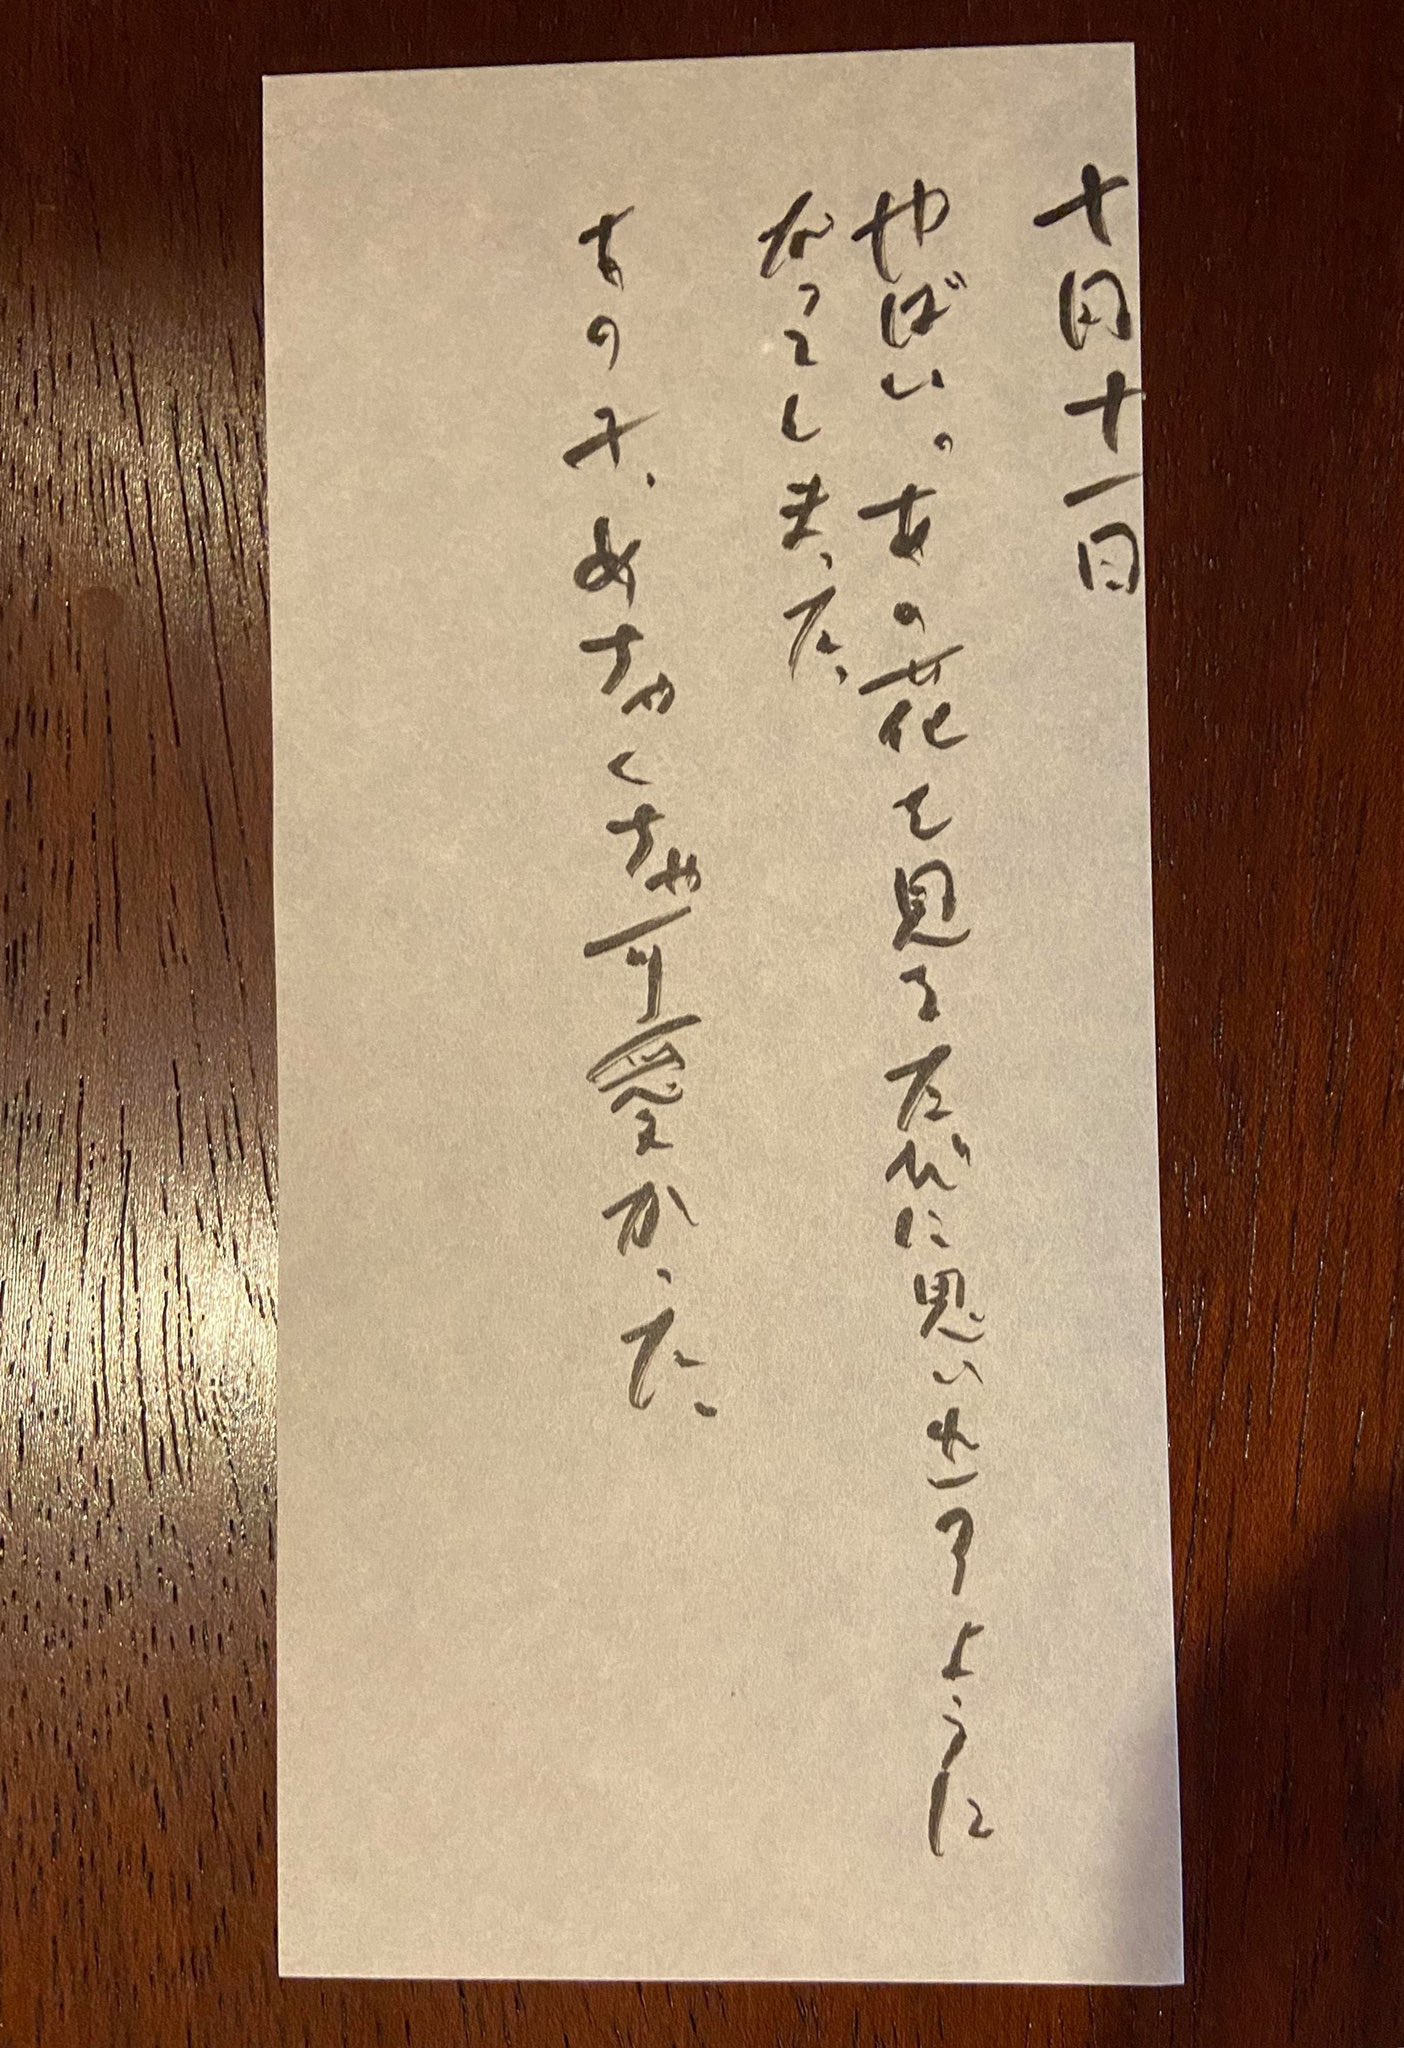 十月十一日
やばい。あの花を見るたびに思い出すように
なってしまった、
あの子、めちゃくちゃ可愛かった、